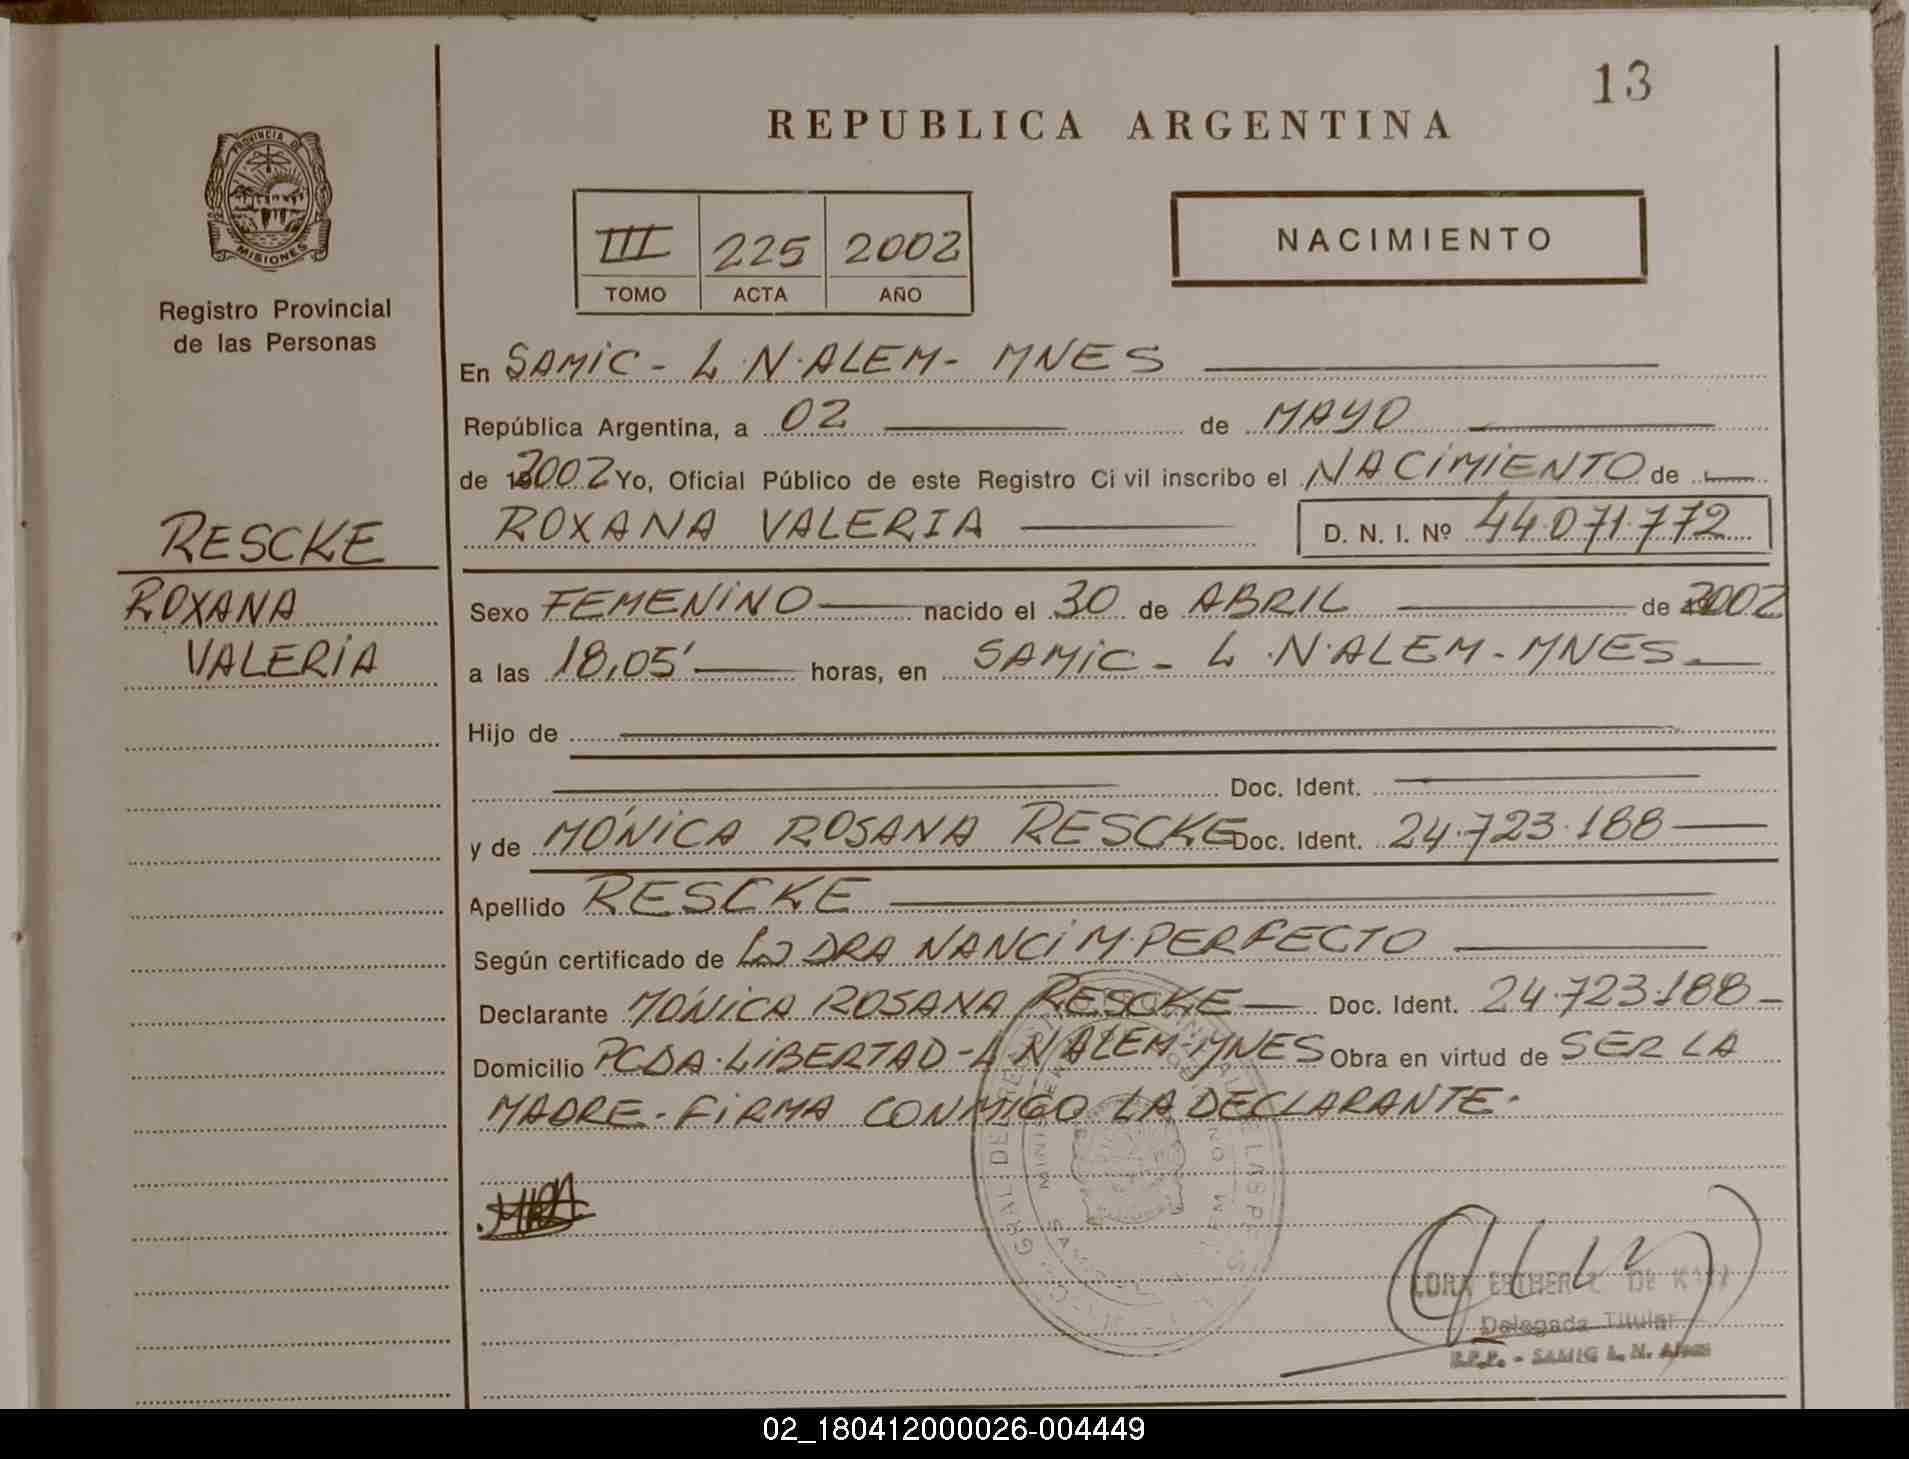 13
REPUBLICA ARGENTINA
PROVINCIA DE
MISIONES
Registro Provincial
de las Personas
III 225 2002
TOMO ACTA AÑO
NACIMIENTO
En SAMIC - L.N.ALEM - MNES
República Argentina, a 02 de MAYO
de 2002 Yo, Oficial Público de este Registro Civil inscribo el NACIMIENTO de
ROXANA VALERIA D. N. I. Nº 44.071.772
RESCKE
ROXANA
VALERIA
Sexo FEMENINO nacido el 30 de ABRIL de 2002
a las 18,05' horas, en SAMIC - L.N.ALEM - MNES
Hijo de
Doc. Ident.
y de MÓNICA ROSANA RESCKE Doc. Ident. 24.723.188
Apellido RESCKE
Según certificado de LA DRA NANCI M. PERFECTO
Declarante MÓNICA ROSANA RESCKE Doc. Ident. 24.723.188
Domicilio PCDA. LIBERTAD - L.N.ALEM - MNES Obra en virtud de SER LA
MADRE - FIRMA CONMIGO LA DECLARANTE.
ESTHER DE
Delegada Titular
R.P.P. - SAMIC L. N. Alem
02_180412000026-004449